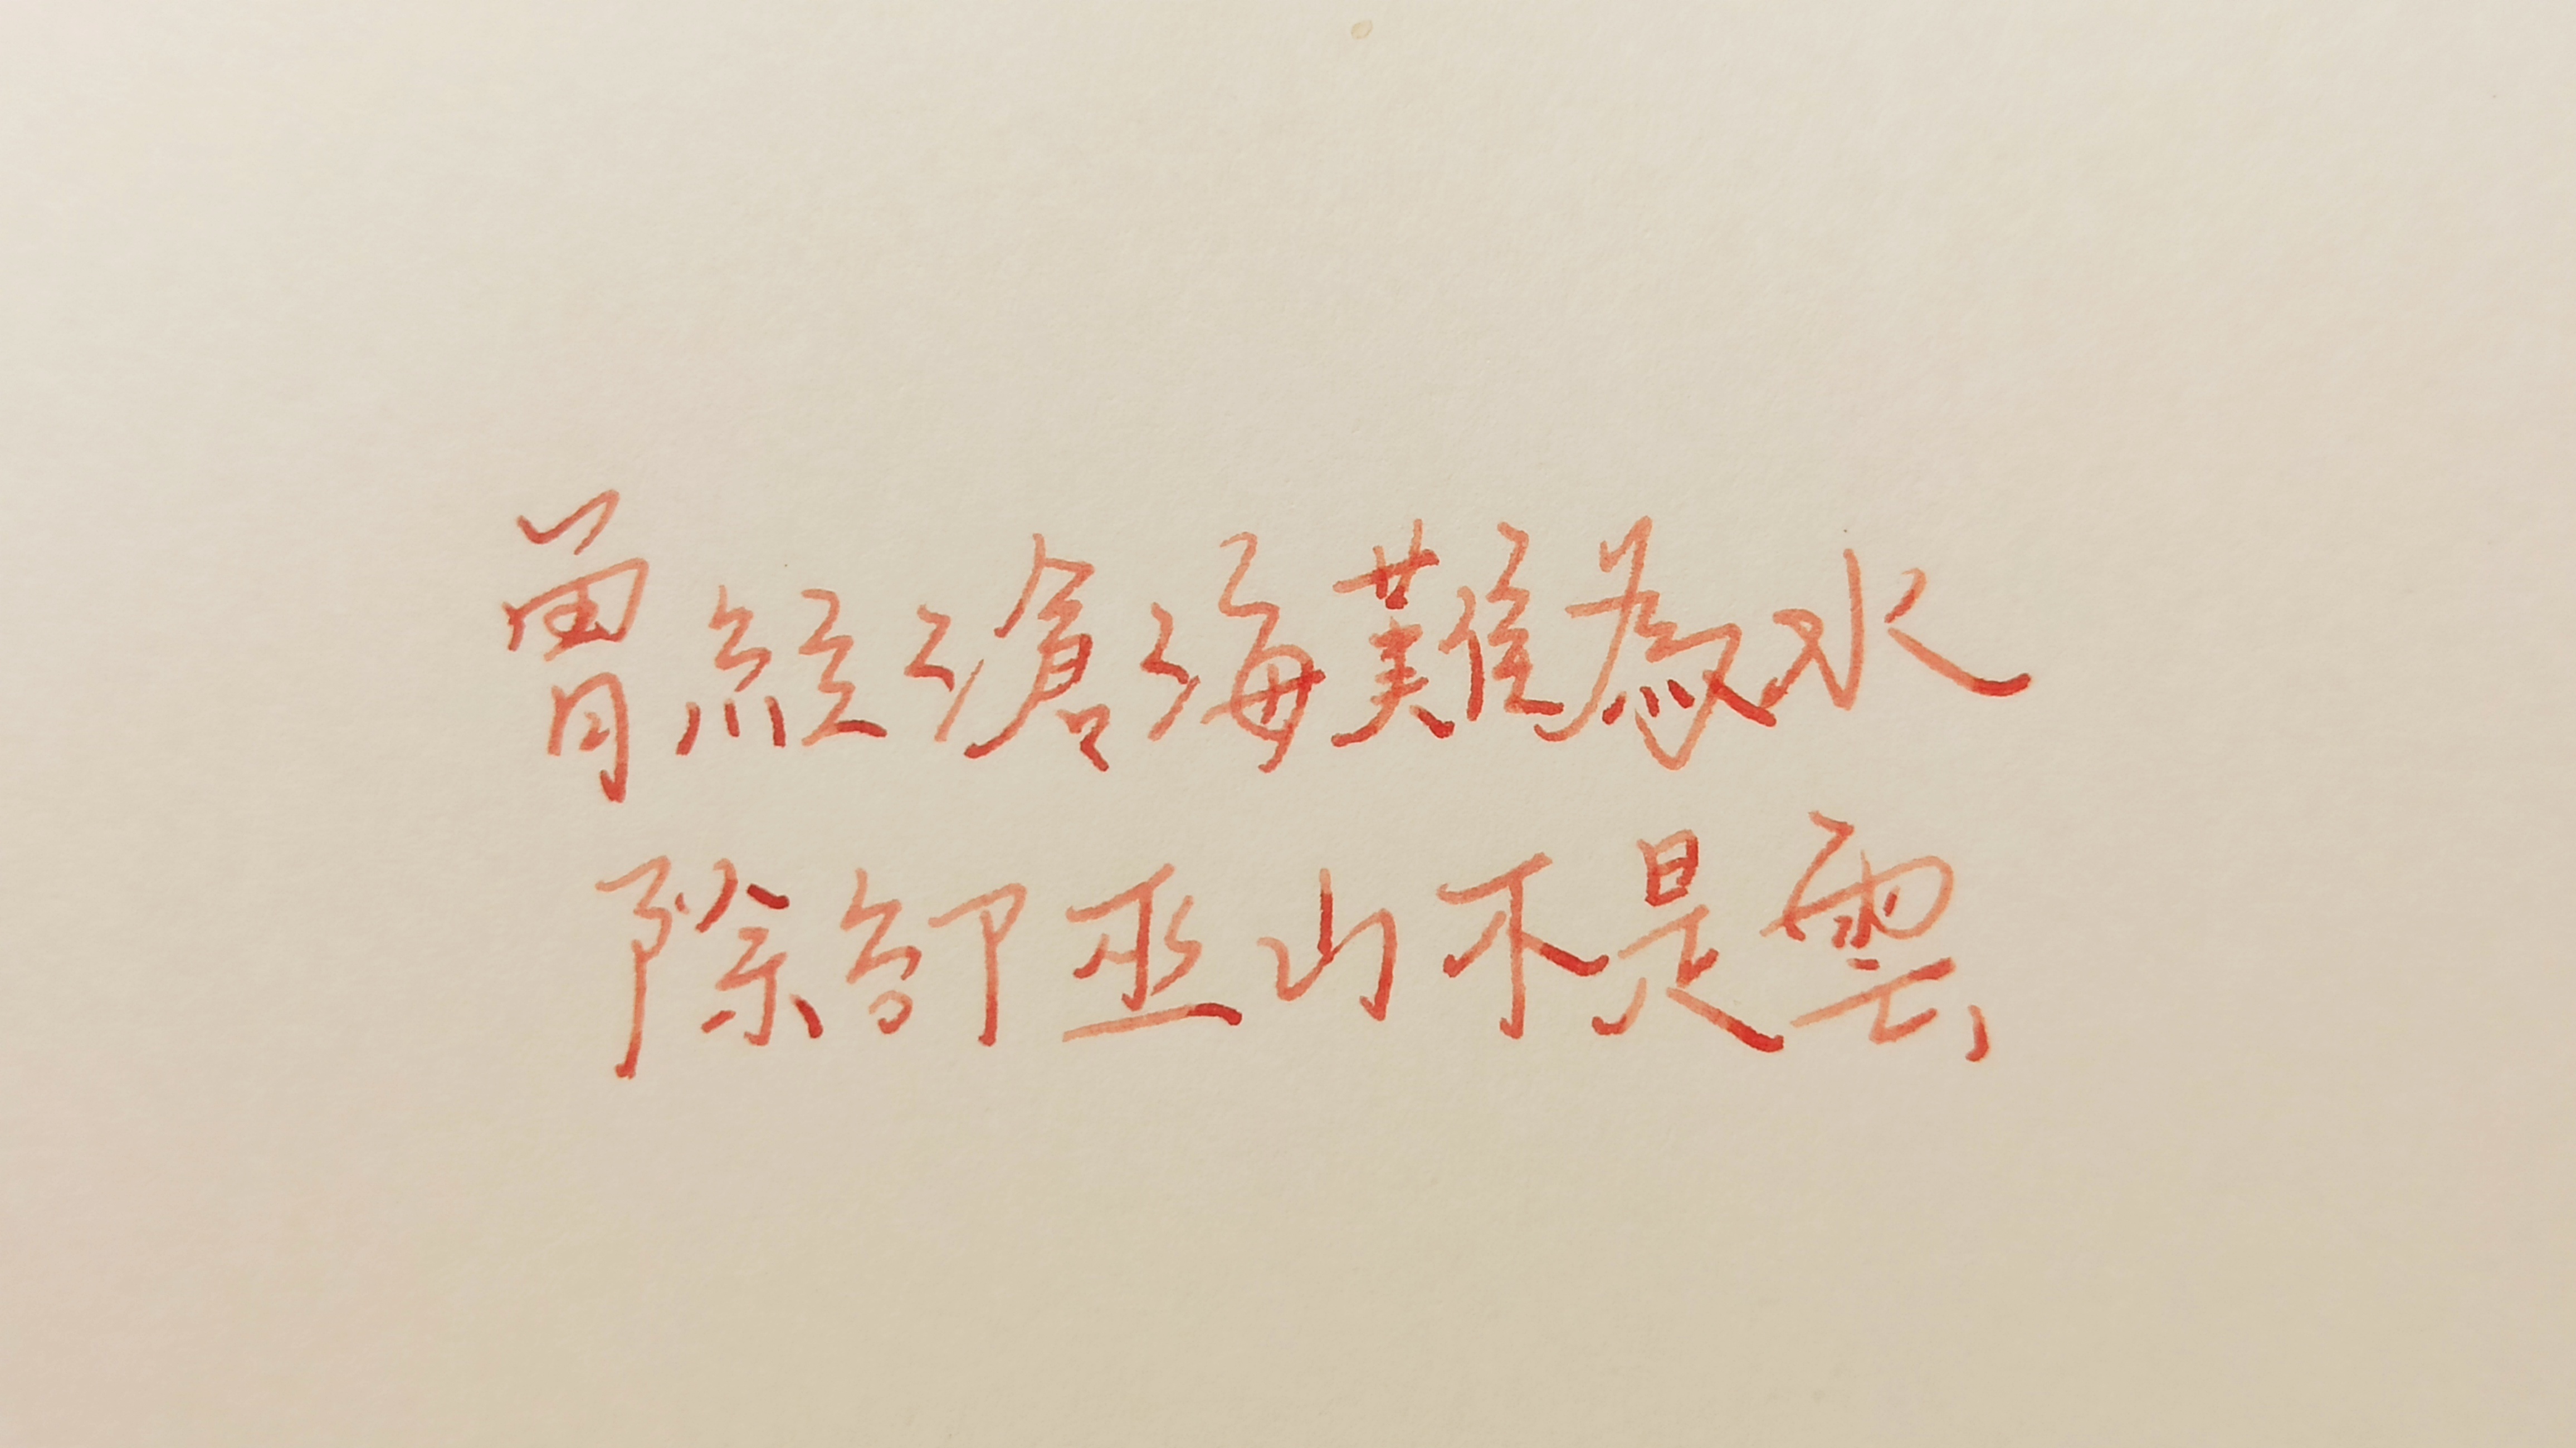 曾經滄海難為水
除卻巫山不是雲